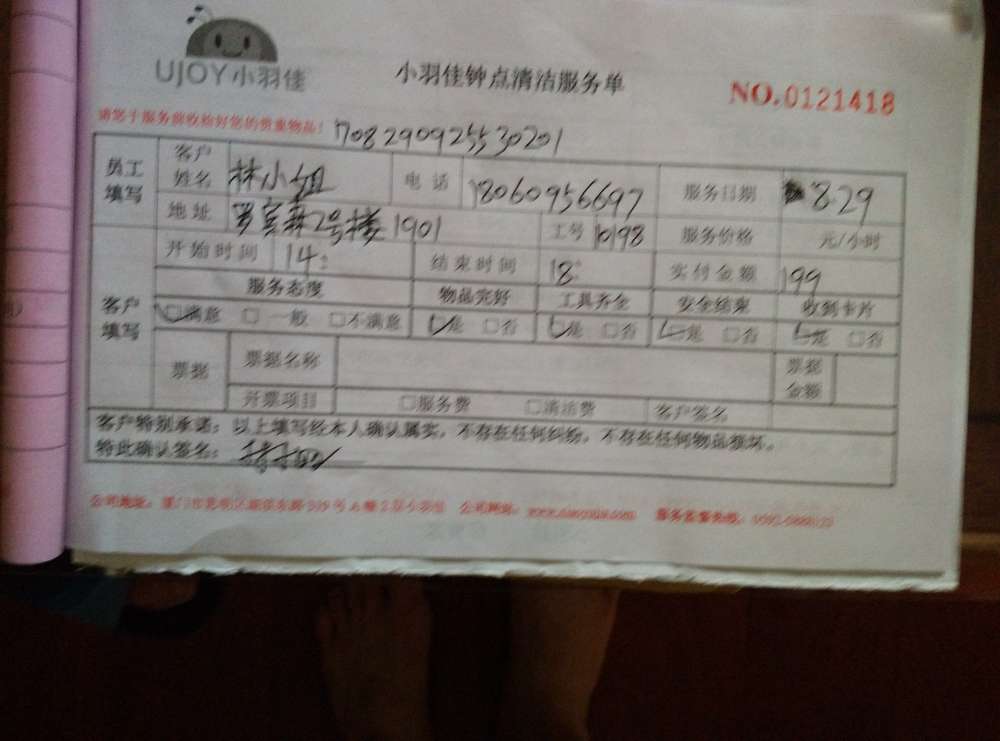 UJOY小羽佳
小羽佳钟点清洁服务单
NO.0121418
请您于服务前收拾好您的贵重物品!
170829092553020
员工填写 客户姓名 林小姐 电话 18060956697 服务日期 8.29
地址 2号楼1901 工号 10198 服务价格 元/小时
客户填写 开始时间 14: 结束时间 18: 实付金额 199
服务态度 物品完好 工具齐全 安全结束 收到卡片
□满意 □一般 □不满意 □是 □否 □是 □否 □是 □否 □是 □否
票据 票据名称 票据金额
开票项目 □服务费 □清洁费 客户签名
客户特别承诺:以上填写经本人确认属实,不存在任何纠纷,不存在任何物品损坏。
特此确认签名:
公司地址:厦门市 公司网站: 服务监督热线: